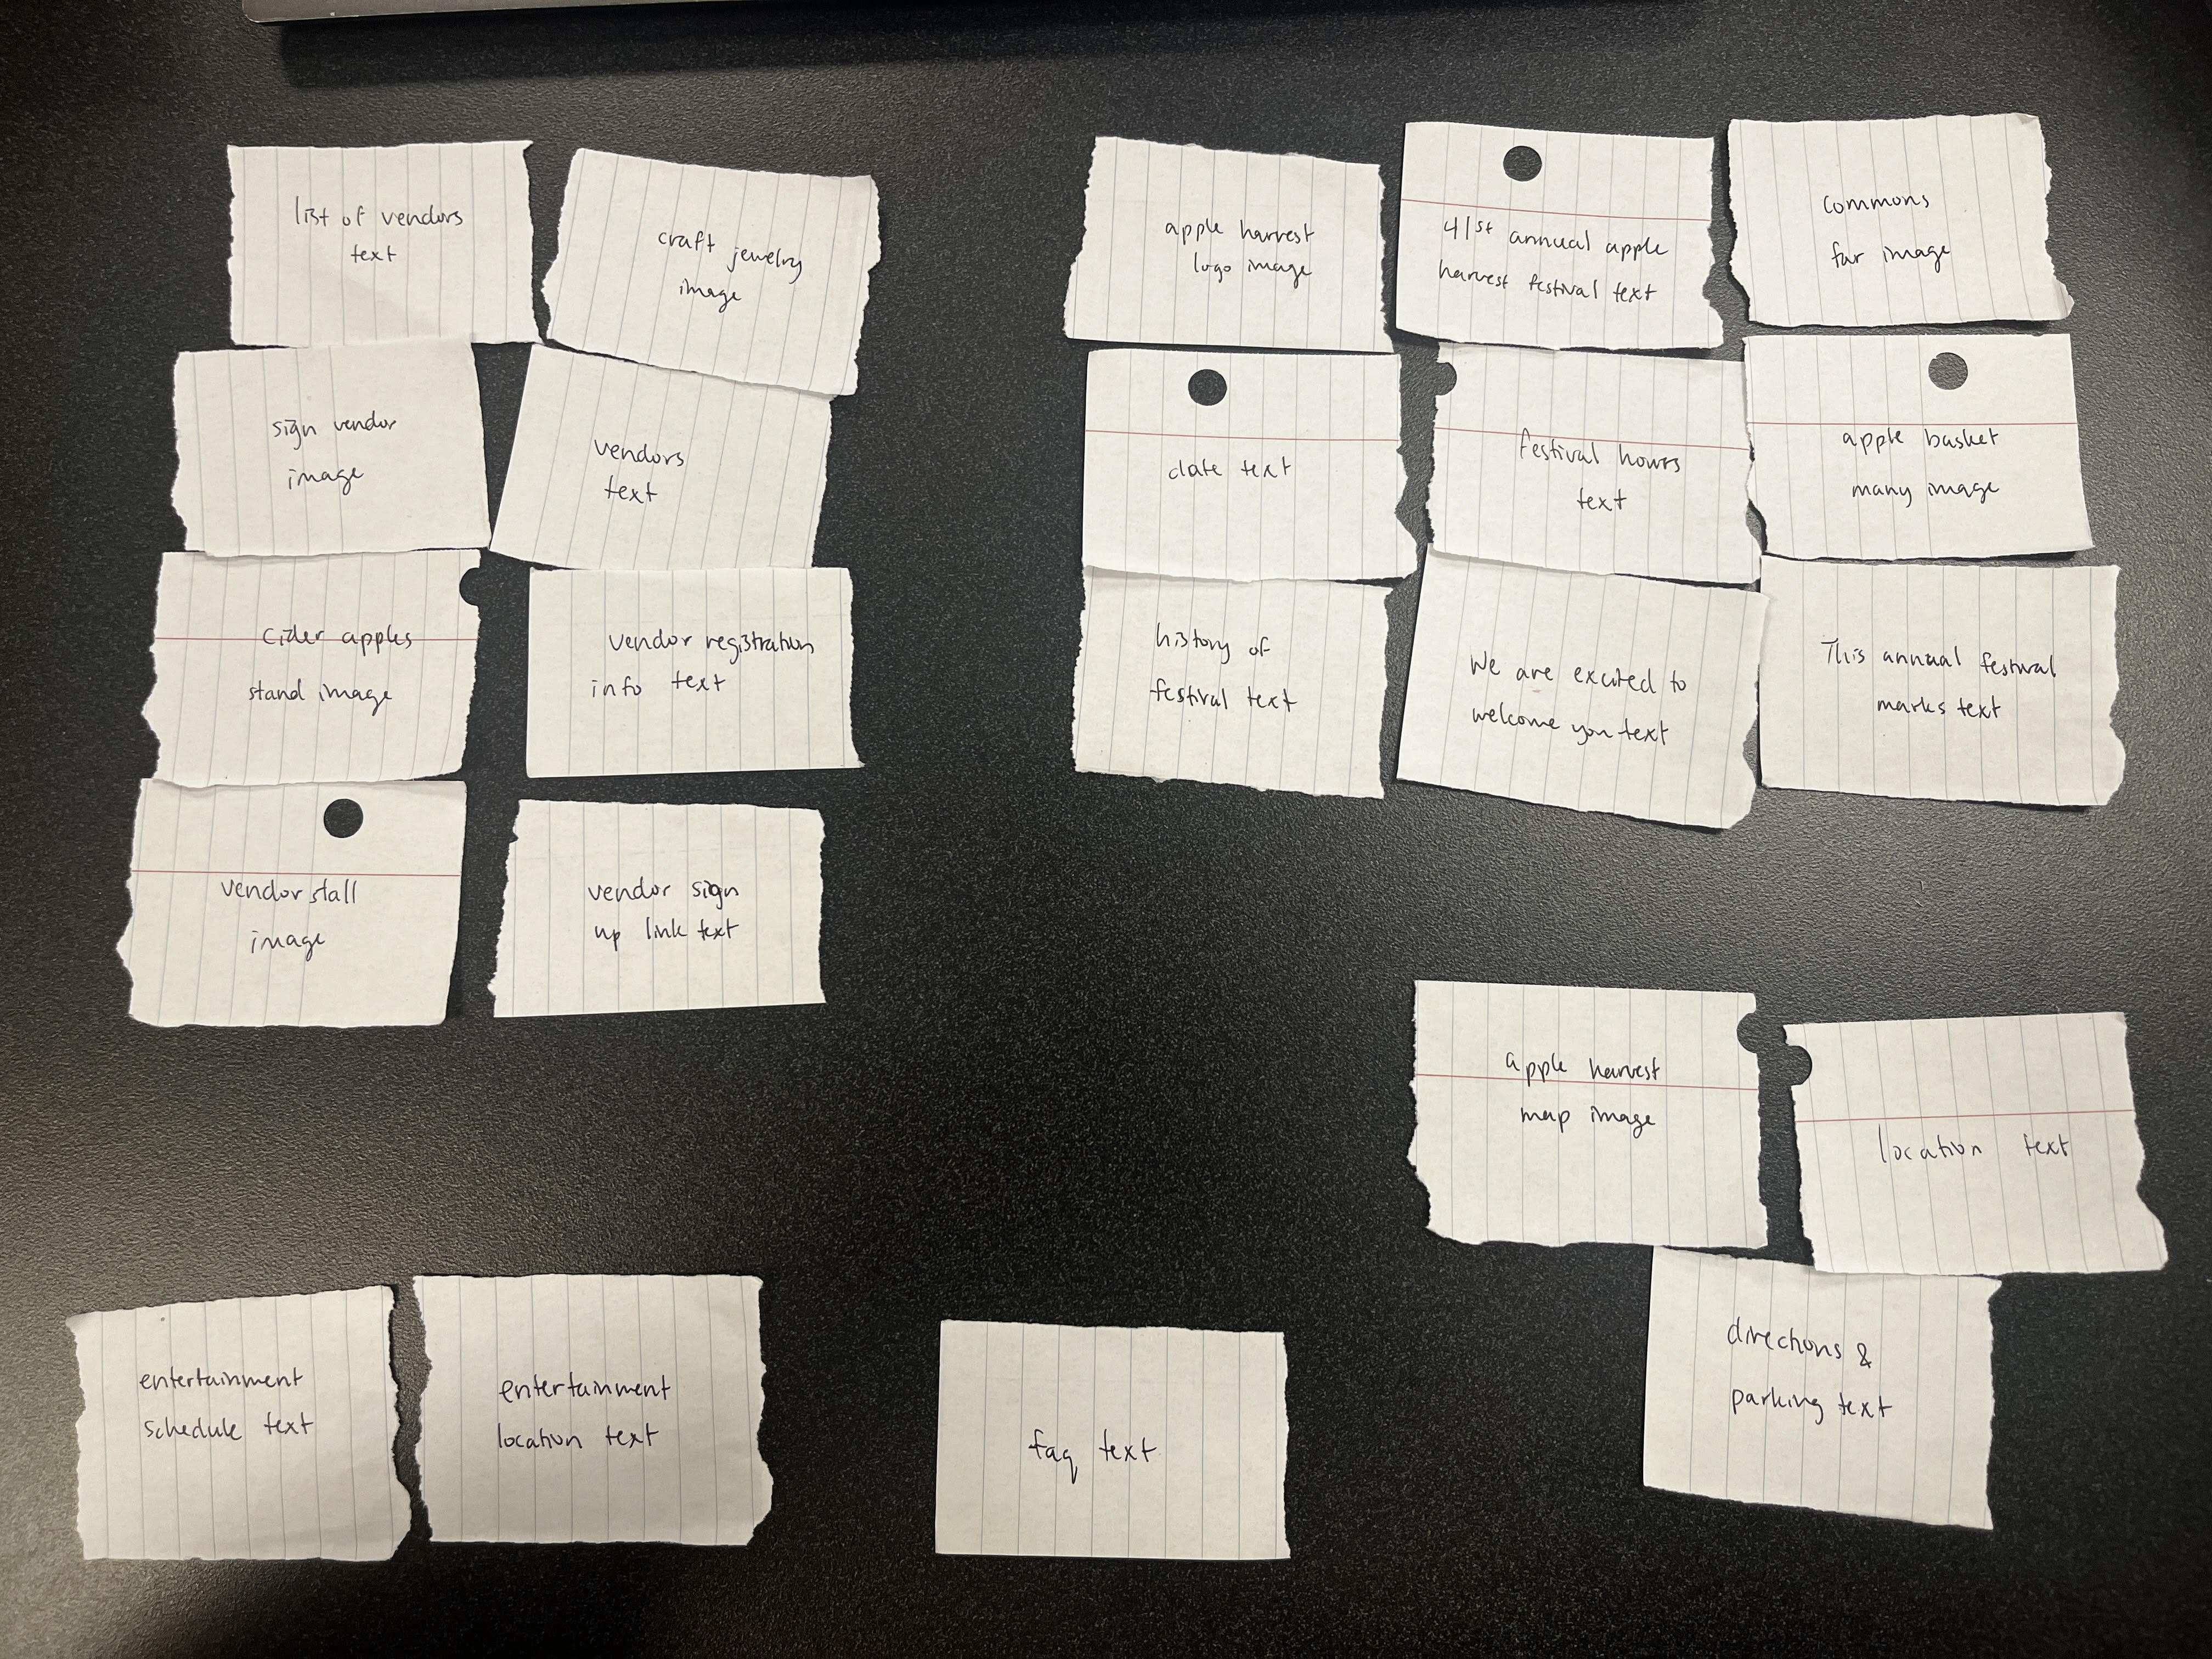 list of vendors
text
craft jewelry
image
sign vendor
image
vendors
text
cider apples
stand image
vendor registration
info text
vendor stall
image
vendor sign
up link text
apple harvest
logo image
41st annual apple
harvest festival text
commons
far image
date text
festival hours
text
apple basket
many image
history of
festival text
We are excited to
welcome you text
This annual festival
marks text
apple harvest
map image
location text
directions &
parking text
entertainment
schedule text
entertainment
location text
faq text